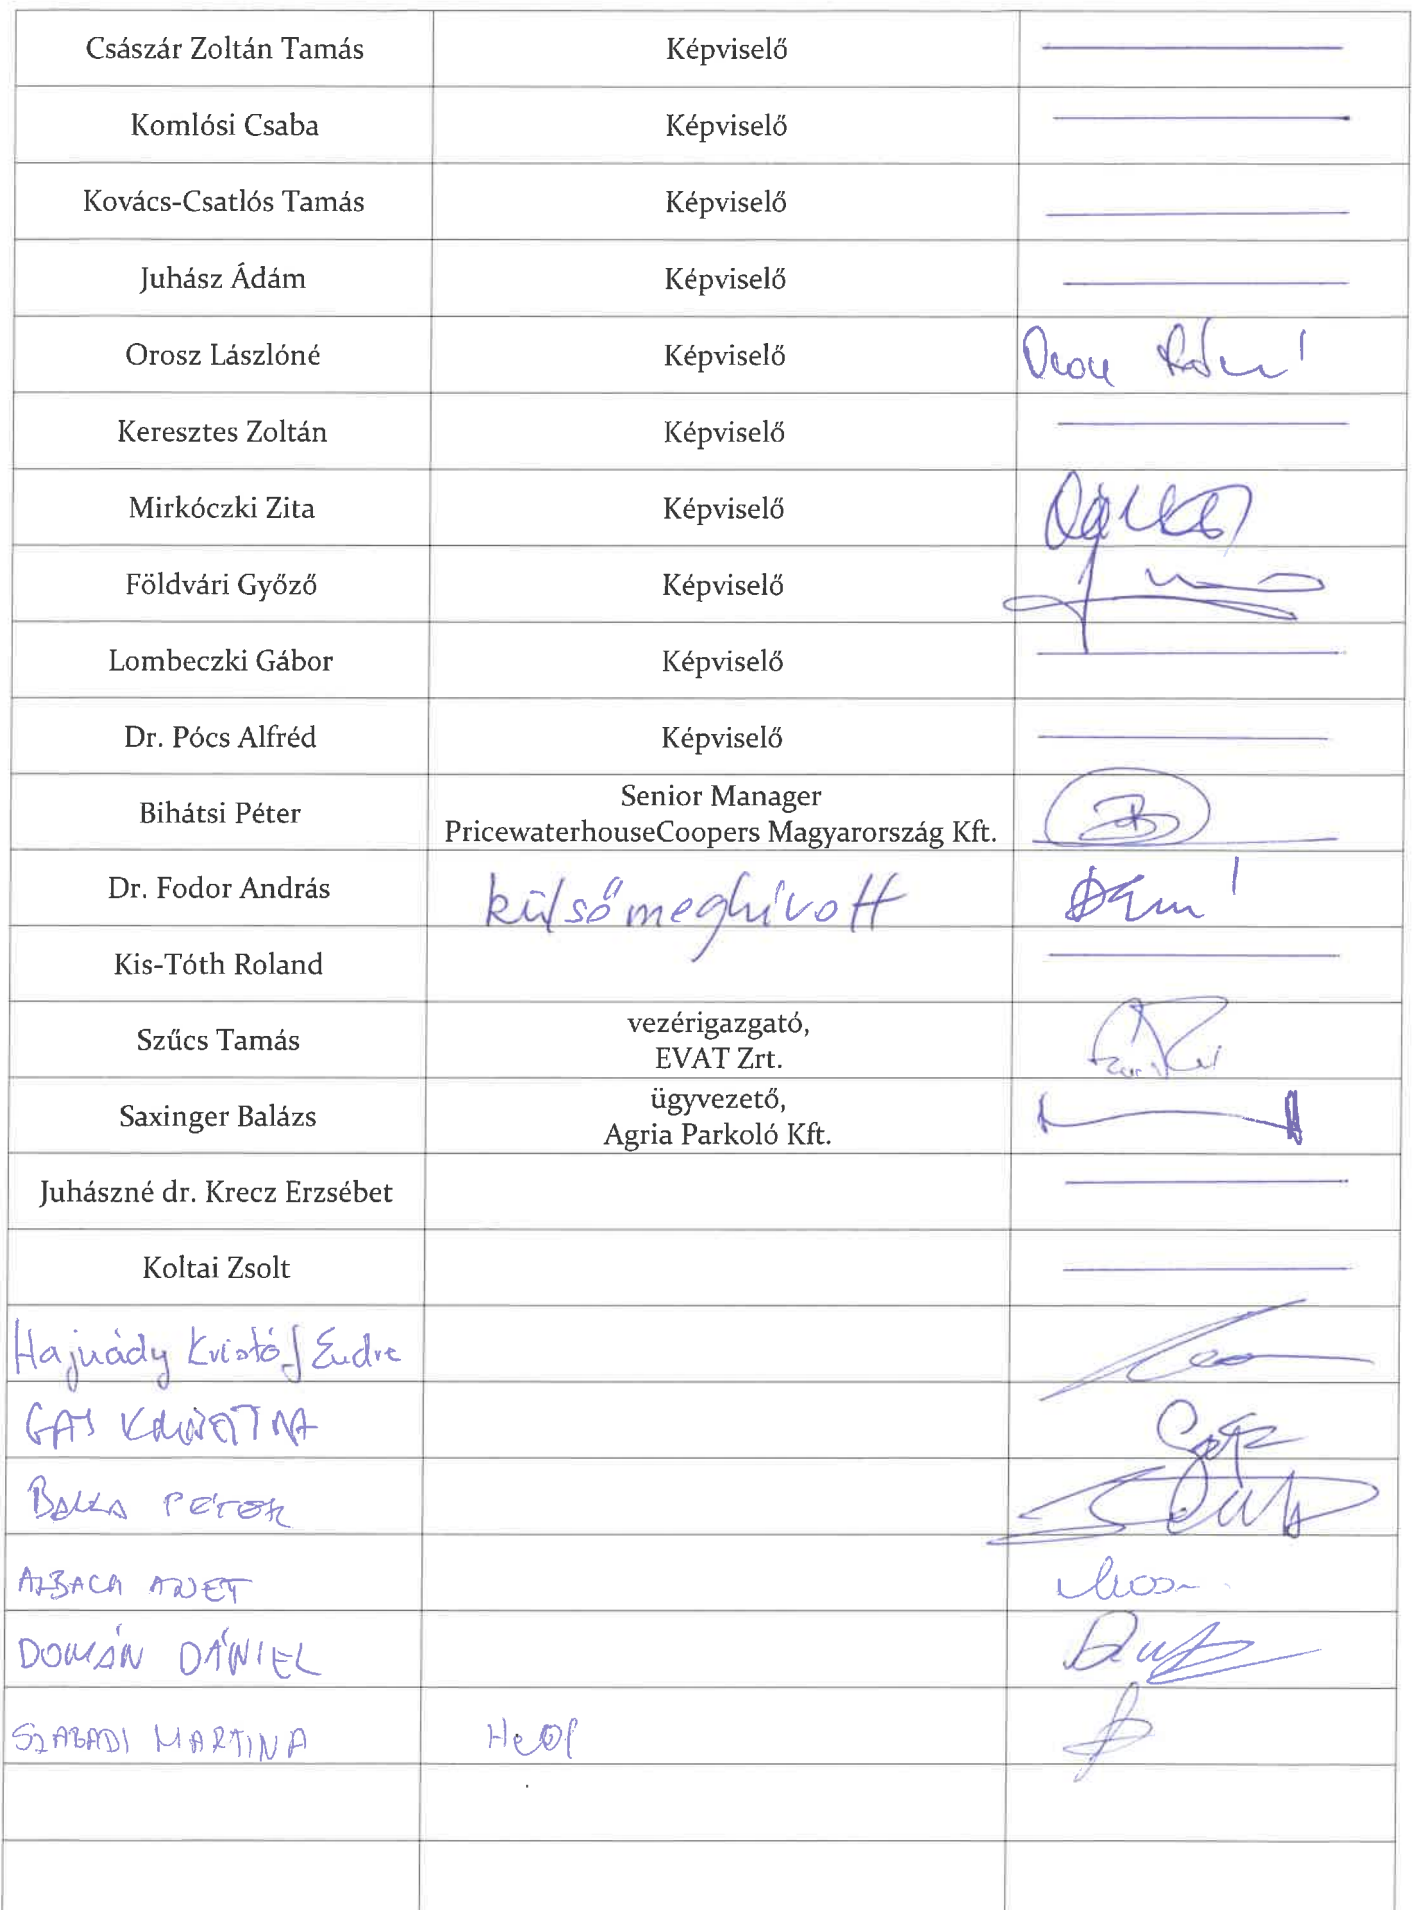 Császár Zoltán Tamás Képviselő
Komlósi Csaba Képviselő
Kovács-Csatlós Tamás Képviselő
Juhász Ádám Képviselő
Orosz Lászlóné Képviselő
Keresztes Zoltán Képviselő
Mirkóczki Zita Képviselő
Földvári Győző Képviselő
Lombeczki Gábor Képviselő
Dr. Pócs Alfréd Képviselő
Bihátsi Péter Senior Manager
PricewaterhouseCoopers Magyarország Kft.
Dr. Fodor András külső meghívott
Kis-Tóth Roland
Szűcs Tamás vezérigazgató,
EVAT Zrt.
Saxinger Balázs ügyvezető,
Agria Parkoló Kft.
Juhászné dr. Krecz Erzsébet
Koltai Zsolt
Hajnády Kristóf Endre
PÉTER
DOMÁN DÁNIEL
SZABADI MARTINA